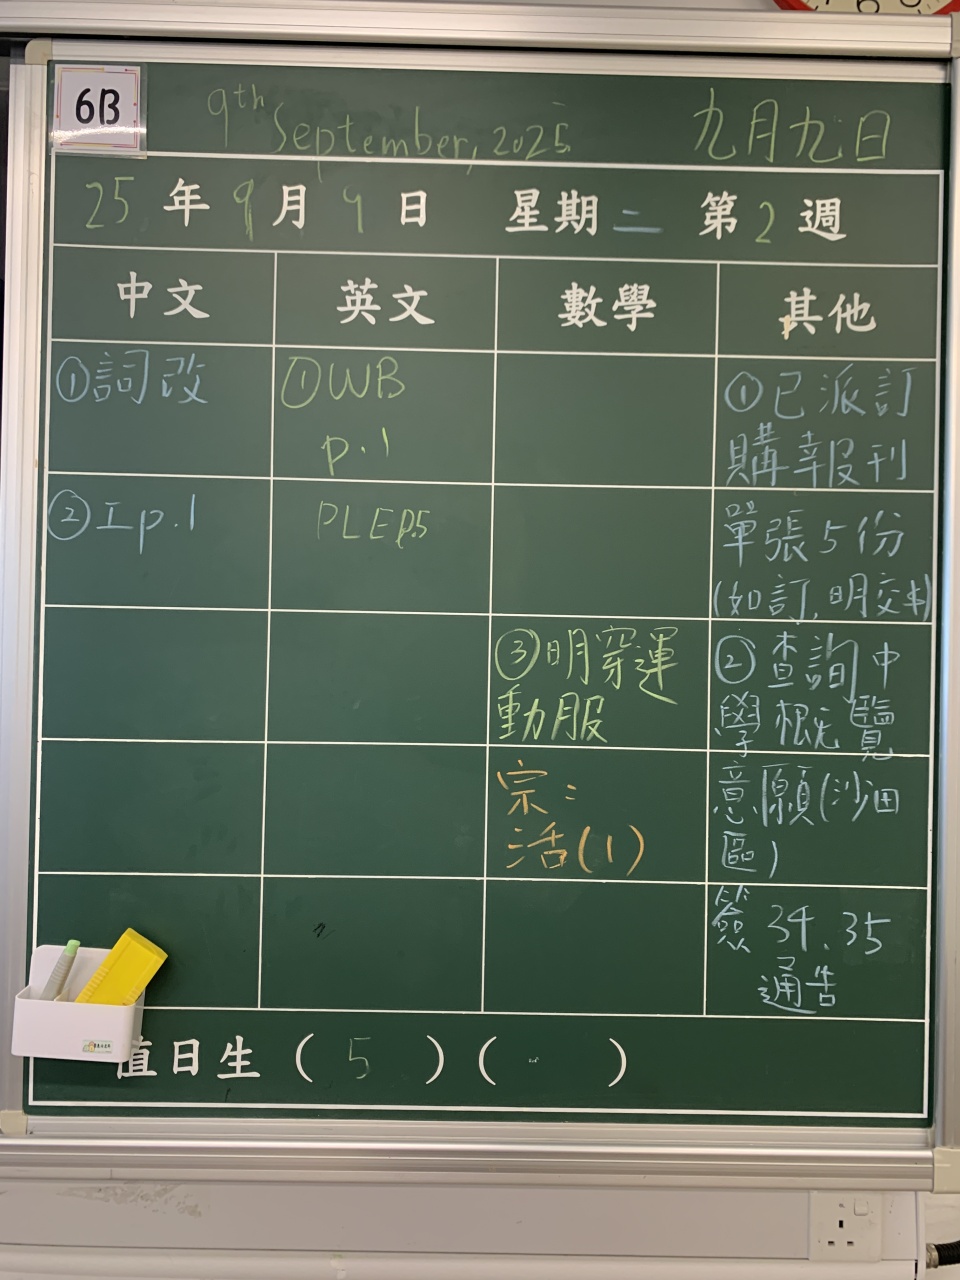 6B
9th September, 2025
九月九日
25年9月9日 星期二 第2週
中文 英文 數學 其他
①詞改
②工p.1
①WB
p.1
PLE p.5
③明穿運
動服
宗:
活(1)
①已派訂
購報刊
單張5份
(如訂,明交
②查詢中
學概覽
意願(沙田
區)
簽34、35
通告
值日生(5)( )